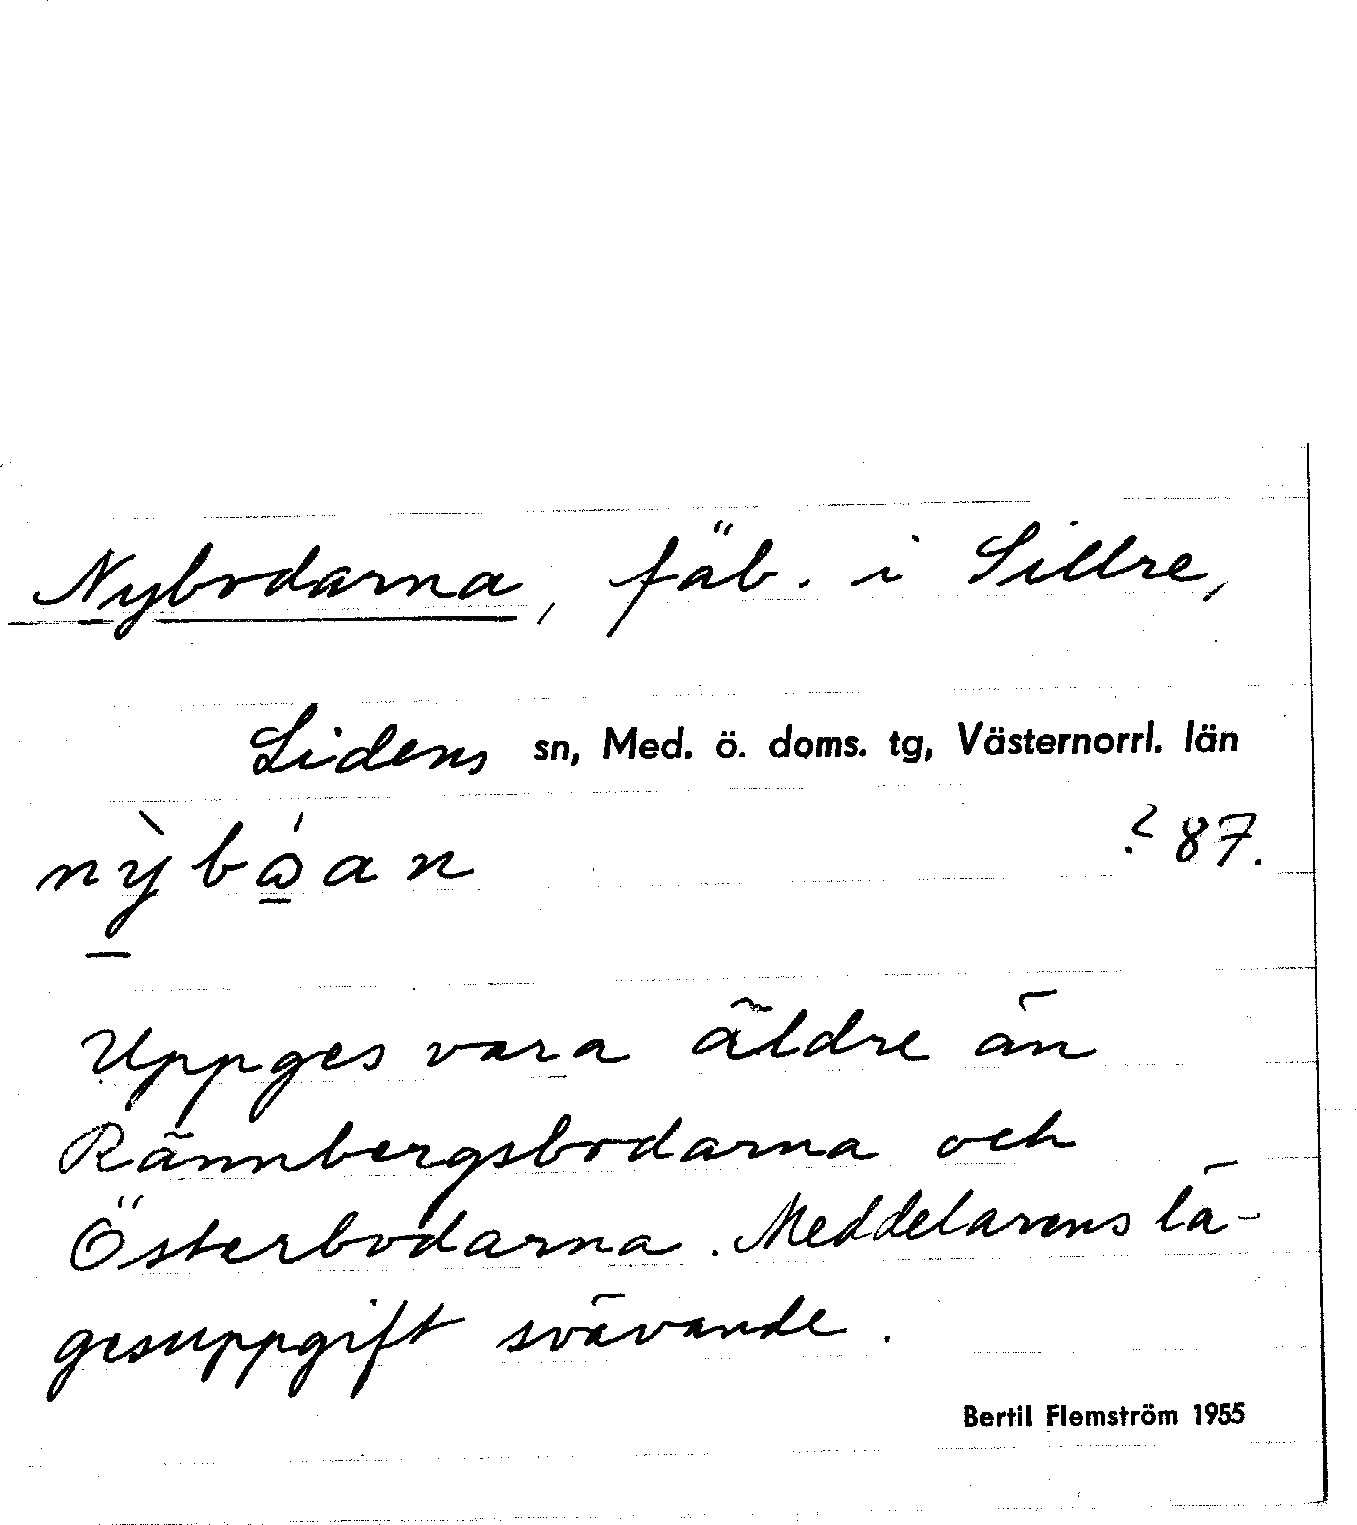 Nybodarna, fäb. i Sillre,
Lidens sn, Med. ö. doms. tg, Västernorrl. län
? 87.
Uppges vara äldre än
Rännbergsbodarna och
Österbodarna. Meddelarens lä-
gesuppgift svävande.
Bertil Flemström 1955